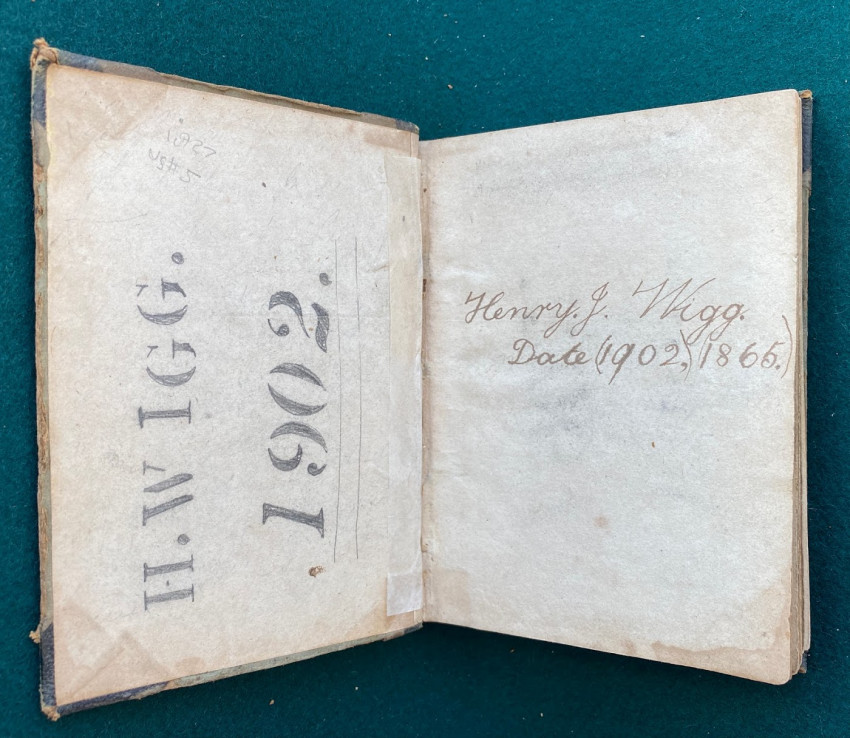 H. WIGG.
1902.
Henry. J. Wigg.
Date (1902,) (1865.)